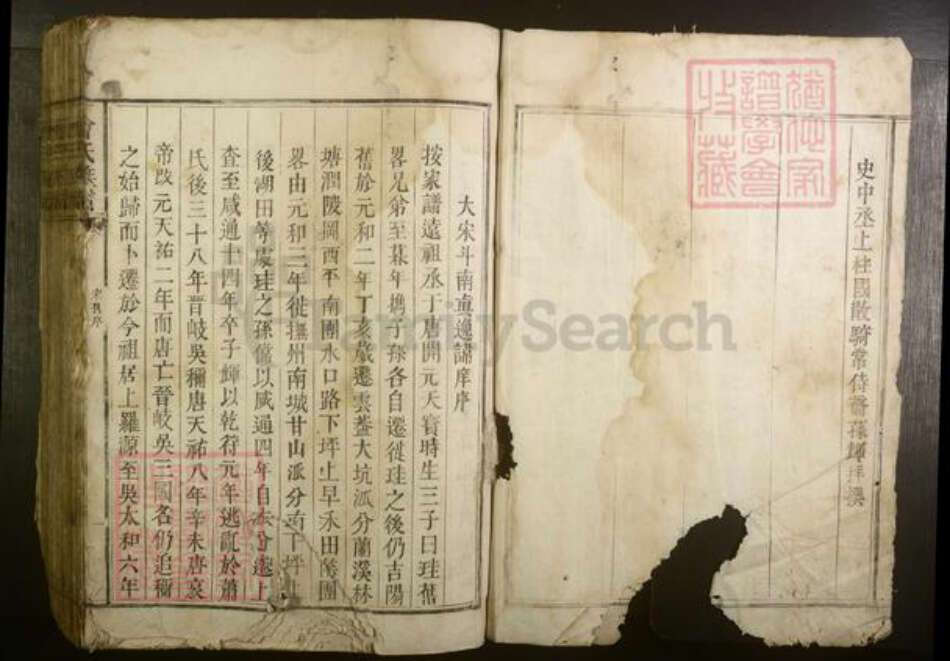 史中丞上柱國散騎常侍 孫輝拜撰
猶他家
譜學會
收藏
大宋斗南貞逸譜庠序
按家譜遠祖丞于唐開元天寶時生三子曰珪舊
畧兄弟至暮年携子孫各自遷徙珪之後仍吉陽
舊於元和二年丁亥歲遷雲蓋大坑派分蘭溪林
塘澗陂岡西下南團水口路下坪上早禾田等團
畧由元和三年徙撫州南城甘山派分 丁坪上
後湖田等處珪之孫 以咸通四年自 分遷上
查至咸通十四年卒子輝以乾符元年逃亂於蕭
氏後三十八年晉岐吳稱唐天祐八年辛未唐哀
帝改元天祐二年而唐亡晉岐吳三國名仍追稱
之始歸而卜遷於今祖居上羅源至吳太和六年
氏族譜
序
FamilySearch